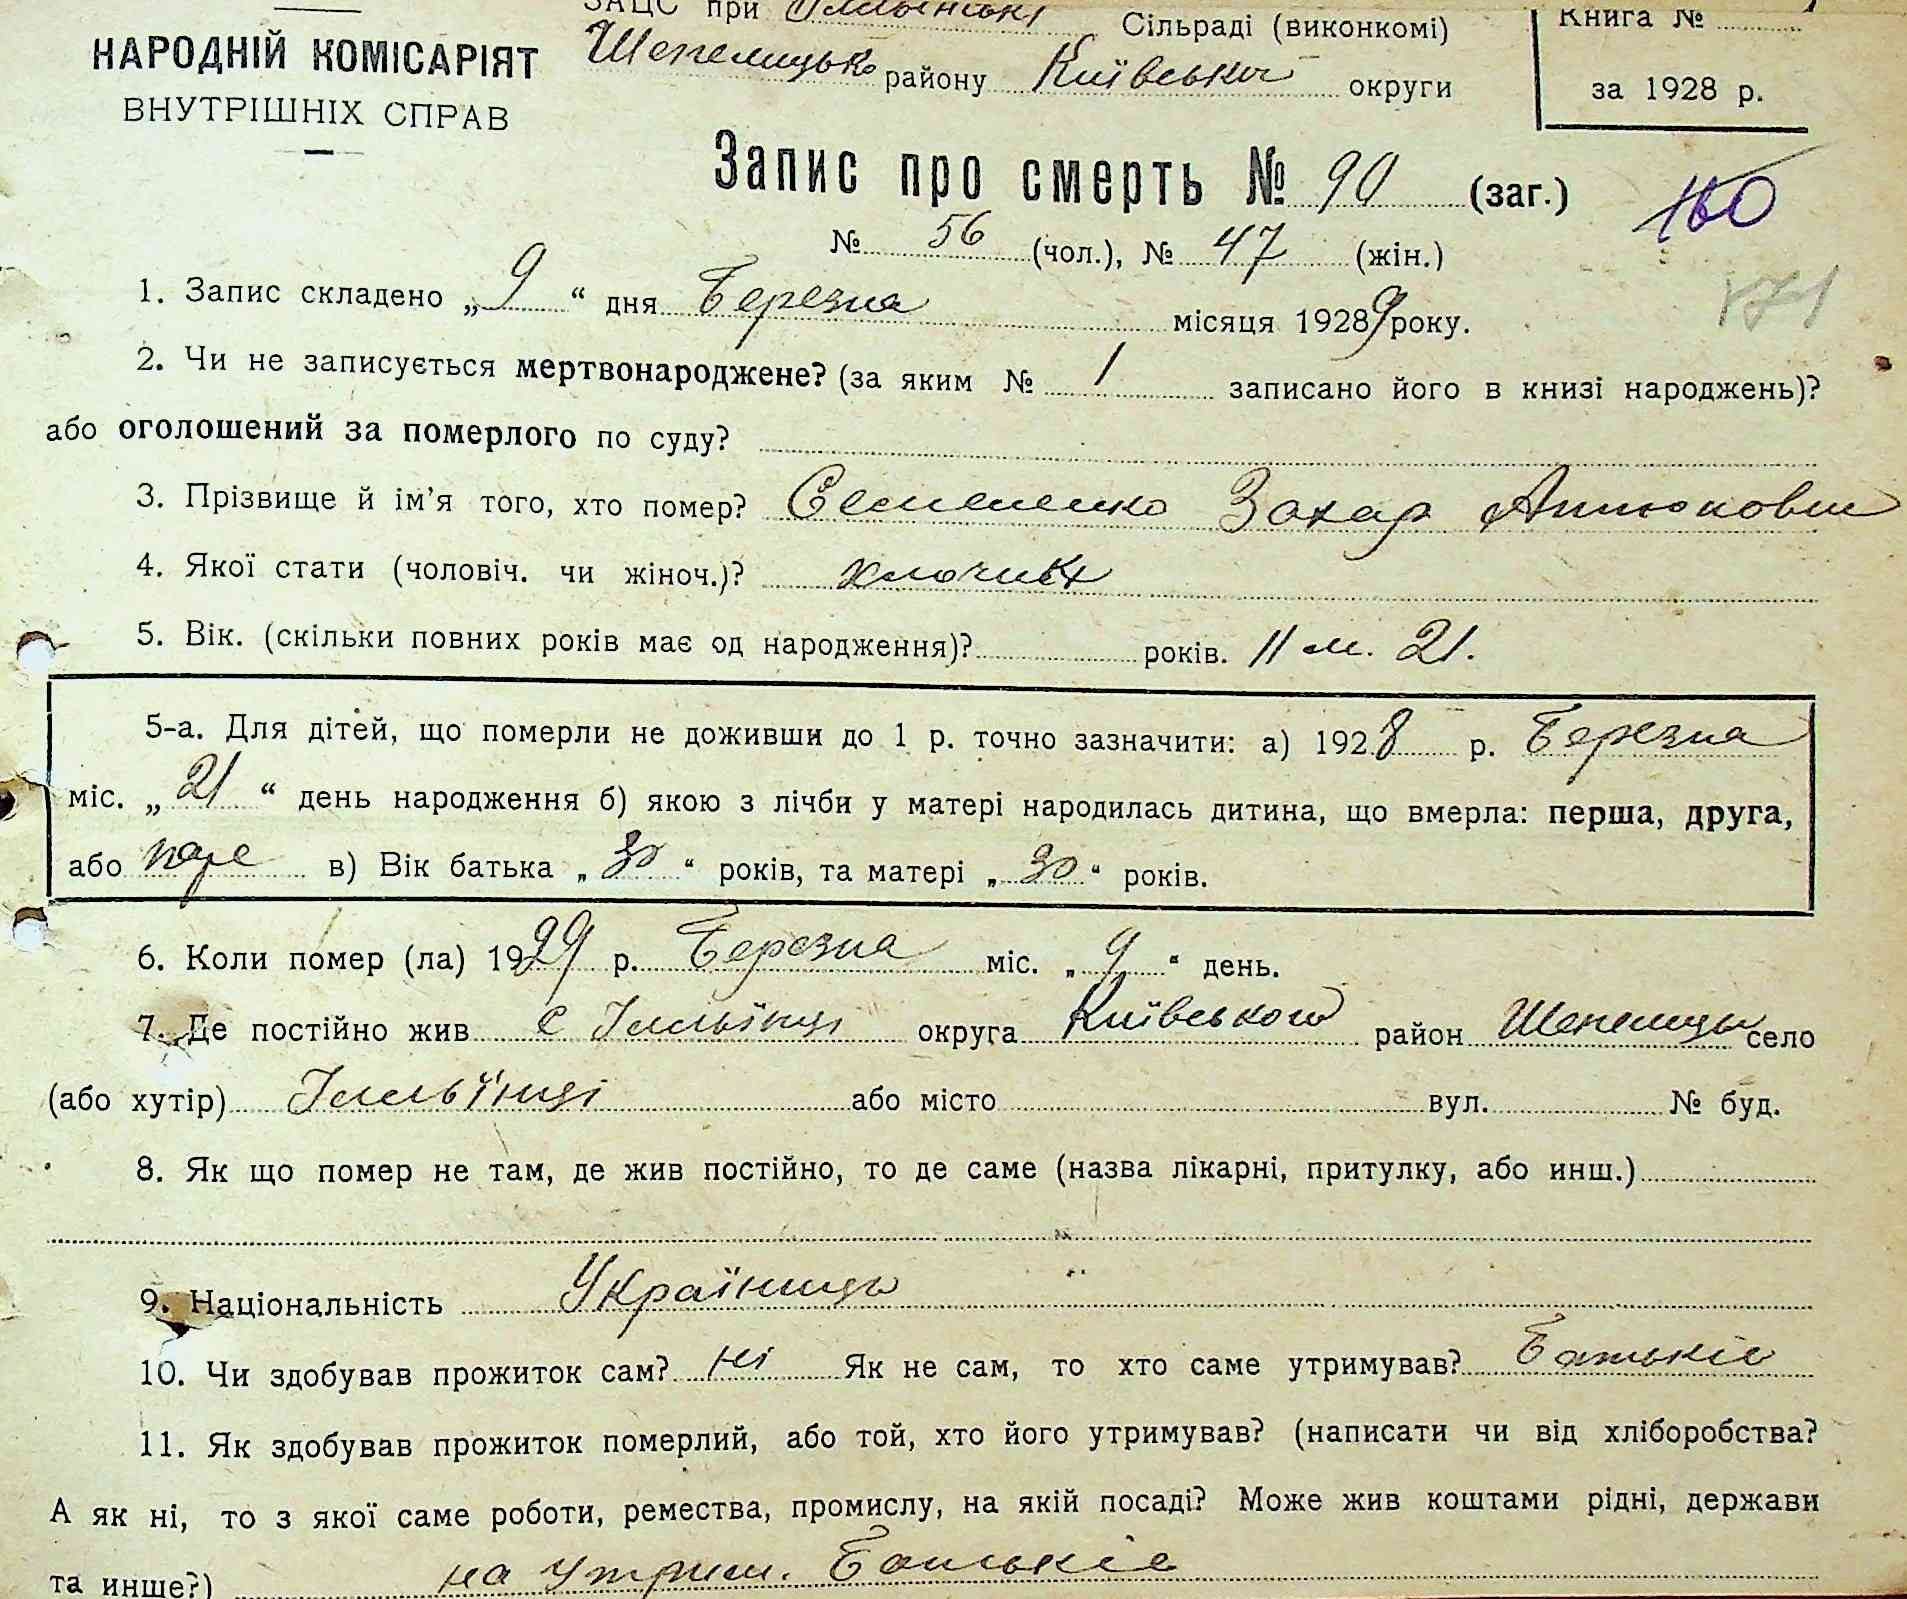 ЗАЦС при Іллінській Сільраді (виконкомі) Книга №
НАРОДНІЙ КОМІСАРІЯТ
ВНУТРІШНІХ СПРАВ
Шепелицько району Київської округи
за 1928 р.
Запис про смерть № 90 (заг.) 160
№ 56 (чол.), № 47 (жін.)
171
1. Запис складено „9“ дня Березня місяця 19289 року.
2. Чи не записується мертвонароджене? (за яким № / записано його в книзі народжень)?
або оголошений за померлого по суду?
3. Прізвище й ім’я того, хто помер? Семененко Захар
4. Якої стати (чоловіч. чи жіноч.)? хлопчик
5. Вік. (скільки повних років має од народження)? років. 11 м. 21.
5-а. Для дітей, що померли не доживши до 1 р. точно зазначити: а) 1928 р. Березня
міс. „21“ день народження б) якою з лічби у матері народилась дитина, що вмерла: перша, друга,
або в) Вік батька „30“ років, та матері „30“ років.
6. Коли помер (ла) 1929 р. Березня міс. „9“ день.
7. Де постійно жив с Ілльїнці округа Київського район Шепелицьк село
(або хутір) Ілльїнці або місто вул. № буд.
8. Як що помер не там, де жив постійно, то де саме (назва лікарні, притулку, або инш.)
9. Національність Українець
10. Чи здобував прожиток сам? ні Як не сам, то хто саме утримував? Батьків
11. Як здобував прожиток померлий, або той, хто його утримував? (написати чи від хліборобства?
А як ні, то з якої саме роботи, ремества, промислу, на якій посаді? Може жив коштами рідні, держави
та инше?) на утрим. Батьків